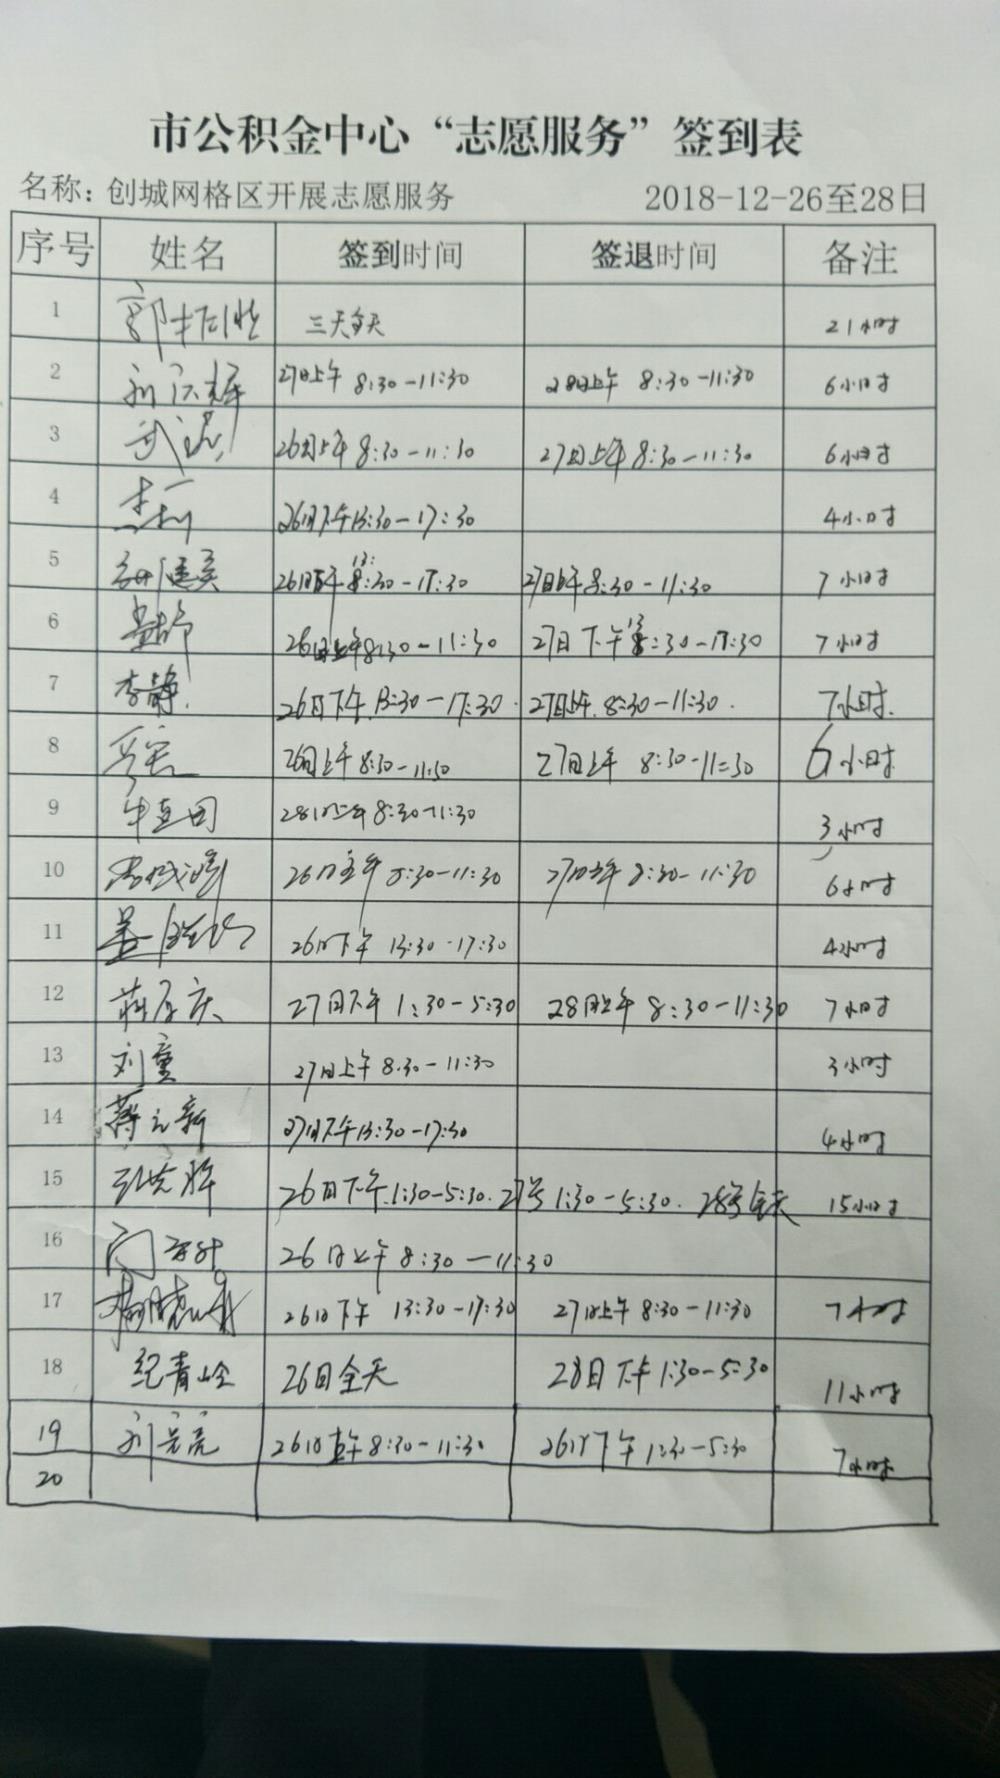 市公积金中心“志愿服务”签到表
名称：创城网格区开展志愿服务 2018-12-26至28日
序号 姓名 签到时间 签退时间 备注
1 三天全天 21小时
2 27日上午 8:30-11:30 28日上午 8:30-11:30 6小时
3 26日上午 8:30-11:30 27日上午 8:30-11:30 6小时
4 26日下午13:30-17:30 4小时
5 26日下午 13:30-17:30 27日上午 8:30-11:30 7小时
6 26日上午8:30-11:30 27日下午13:30-17:30 7小时
7 李静 26日下午.13:30-17:30. 27日上午. 8:30-11:30. 7小时.
8 26日上午 8:30-11:30 27日上午 8:30-11:30 6小时
9 28日上午 8:30-11:30 3小时
10 26日上午 8:30-11:30 27日上午 8:30-11:30 6小时
11 26日下午 13:30-17:30 4小时
12 27日下午 1:30-5:30 28日上午 8:30-11:30 7小时
13 刘童 27日上午 8:30-11:30 3小时
14 蒋立新 27日下午13:30-17:30 4小时
15 26日下午.1:30-5:30. 27号 1:30-5:30. 28号全天 15小时
16 26日上午 8:30-11:30
17 26日下午 13:30-17:30 27日上午 8:30-11:30 7小时
18 纪青岭 26日全天 28日下午 1:30-5:30 11小时
19 26日上午 8:30-11:30 26日下午 1:30-5:30 7小时
20